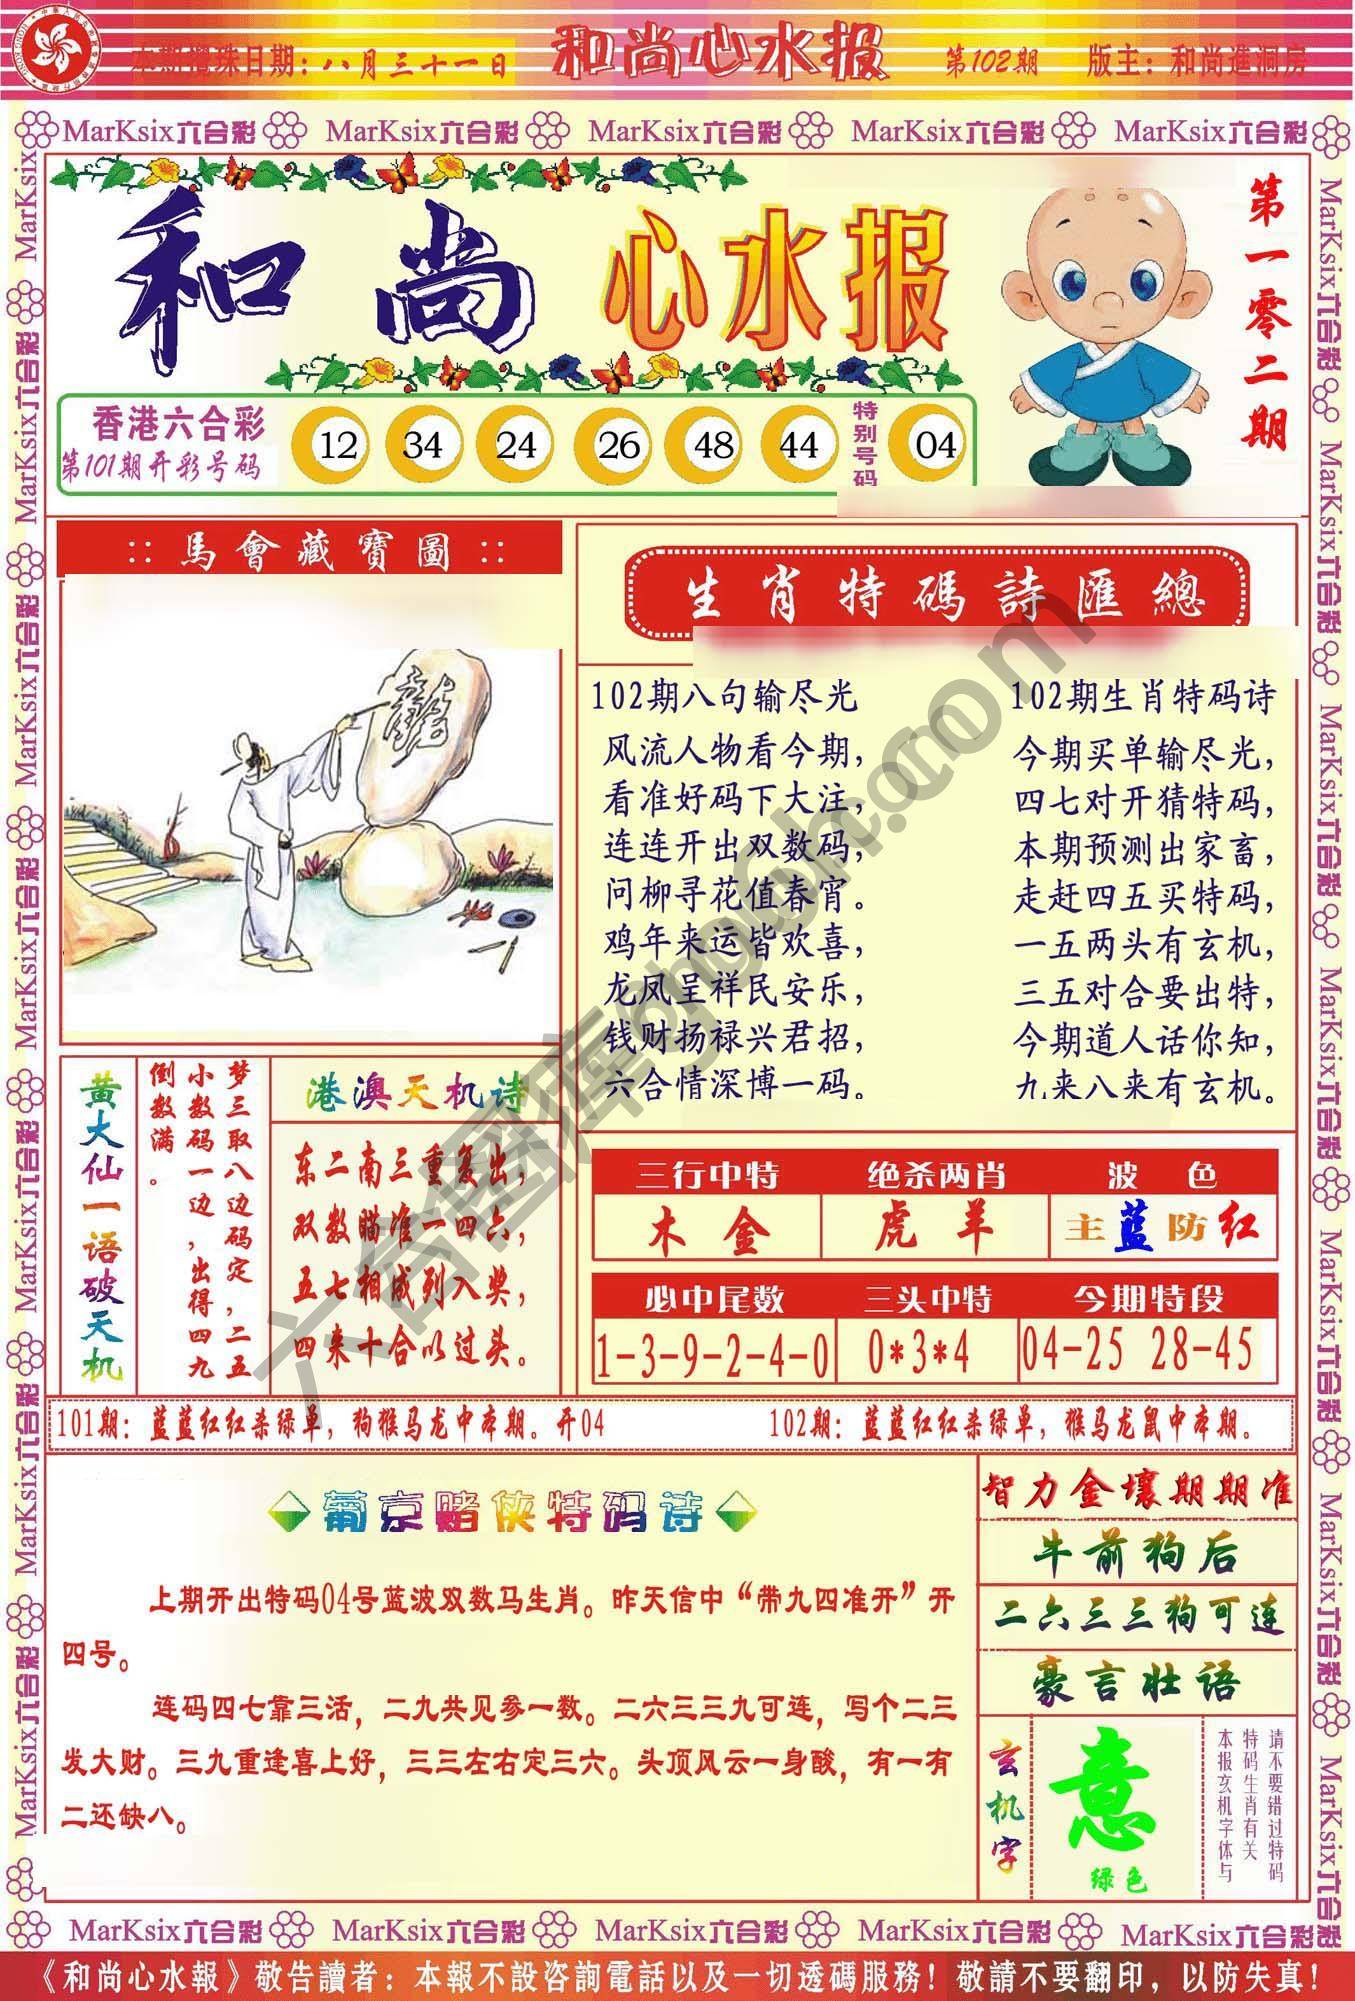 本期攪珠日期：八月三十一日 和尚心水报 第102期 版主：和尚進洞房
MarKsix六合彩 MarKsix六合彩 MarKsix六合彩 MarKsix六合彩 MarKsix六合彩
和尚心水报
第一零二期
香港六合彩
第101期开彩号码
12 34 24 26 48 44 特别号码 04
::馬會藏寶圖::
生肖特碼詩匯總
102期八句输尽光
风流人物看今期，
看准好码下大注，
连连开出双数码，
问柳寻花值春宵。
鸡年来运皆欢喜，
龙凤呈祥民安乐，
钱财扬禄兴君招，
六合情深博一码。
102期生肖特码诗
今期买单输尽光，
四七对开猜特码，
本期预测出家畜，
走赶四五买特码，
一五两头有玄机，
三五对合要出特，
今期道人话你知，
九来八来有玄机。
黄大仙一语破天机
梦三取八边码定，二五
小数码一边，出得四九
倒数满。
港澳天机诗
东二南三重复出，
双数瞄准一四六，
五七相成列入奖，
四来十合以过头。
三行中特 绝杀两肖 波色
木金 虎羊 主蓝防红
必中尾数 三头中特 今期特段
1-3-9-2-4-0 0*3*4 04-25 28-45
101期：蓝蓝红红杀绿单，狗猴马龙中本期。开04
102期：蓝蓝红红杀绿单，猴马龙鼠中本期。
葡京赌侠特码诗
上期开出特码04号蓝波双数马生肖。昨天信中“带九四准开”开
四号。
连码四七靠三活，二九共见参一数。二六三三九可连，写个二三
发大财。三九重逢喜上好，三三左右定三六。头顶风云一身酸，有一有
二还缺八。
智力金壤期期准
牛前狗后
二六三三狗可连
豪言壮语
玄机字
意
绿色
请不要错过特码
特码生肖有关
本报玄机字体与
MarKsix六合彩 MarKsix六合彩 MarKsix六合彩 MarKsix六合彩 MarKsix六合彩
《和尚心水報》敬告讀者：本報不設咨詢電話以及一切透碼服務！敬請不要翻印，以防失真！